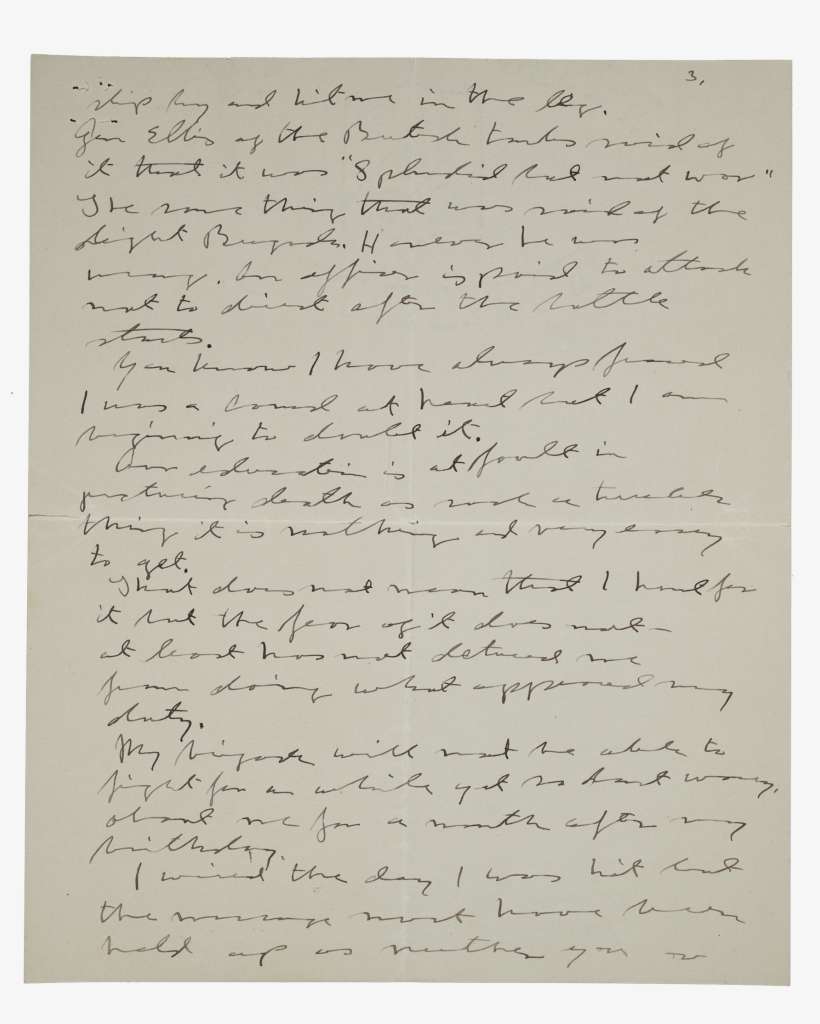 3.
slip by and hit me in the leg.
Gen Ellis of the British tanks said of
it that it was "Splendid but not war"
The same thing that was said of the
Light Brigade. However he was
wrong. An officer is paid to attack
not to direct after the battle
starts.
You know I have always feared
I was a coward at heart but I am
beginning to doubt it.
Our education is at fault in
picturing death as such a terrible
thing it is nothing and very easy
to get.
That does not mean that I hunt for
it but the fear of it does not—
at least has not detered me
from doing what appeared my
duty.
My brigade will not be able to
fight for a while yet so dont worry,
about me for a month after my
birthday.
I wired the day I was hit but
the message must have been
held up as neither you or